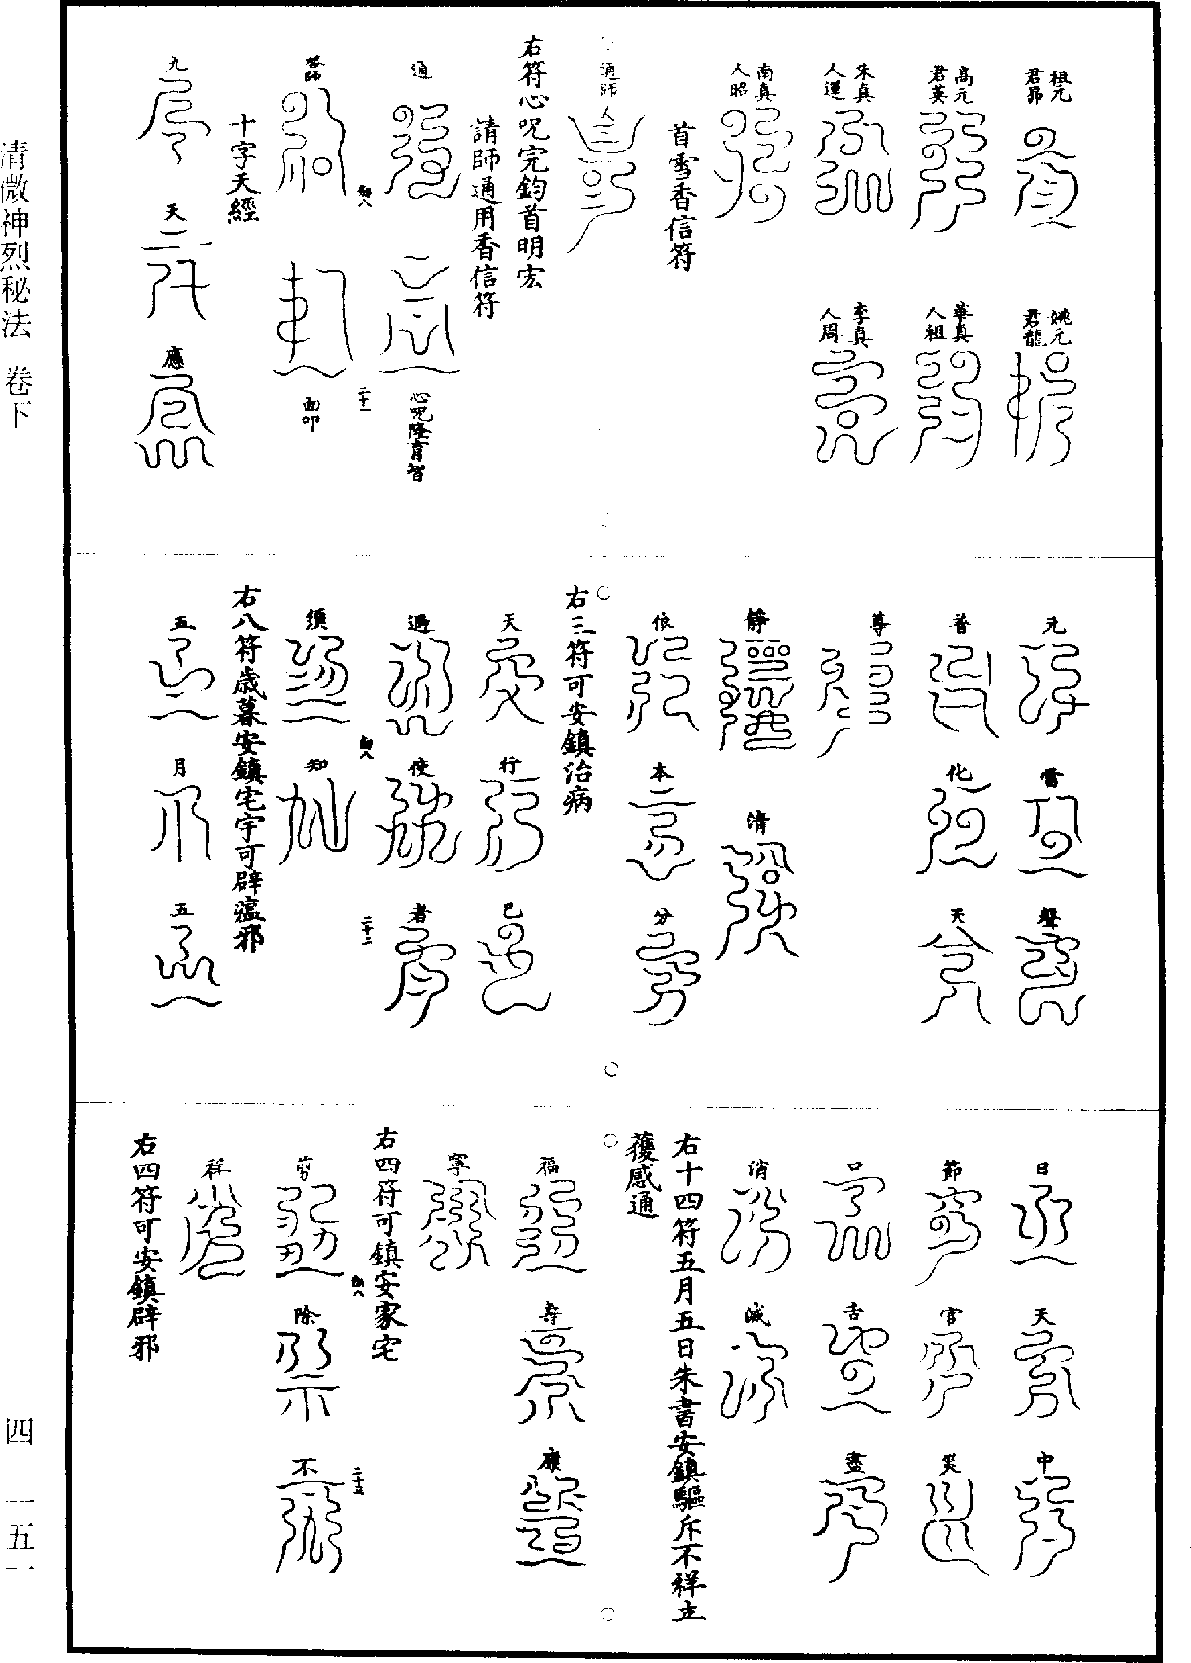 清微神烈秘法 卷下
四 一五一
祖元君昴
姚元君龍
高元君英
華真人祖
朱真人選
李真人周
南真人昭
首雪香信符
通師人
右符心呪完鈞首明宏
請師通用香信符
通
心呪隆育智
面印
二十一
十字天經
九
天
應
元
雷
聲
普
化
天
尊
靜
清
依
本
分
右三符可安鎮治病
天
行
已
過
使
者
須
知
二十二
右八符歲暮安鎮宅宇可辟瘟邪
五
月
五
日
天
中
節
官
災
口
舌
盡
消
滅
右十四符五月五日朱書安鎮驅斥不祥立
獲感通
福
壽
康
寧
右四符可鎮安家宅
剪
除
不
祥
二十三
右四符可安鎮辟邪